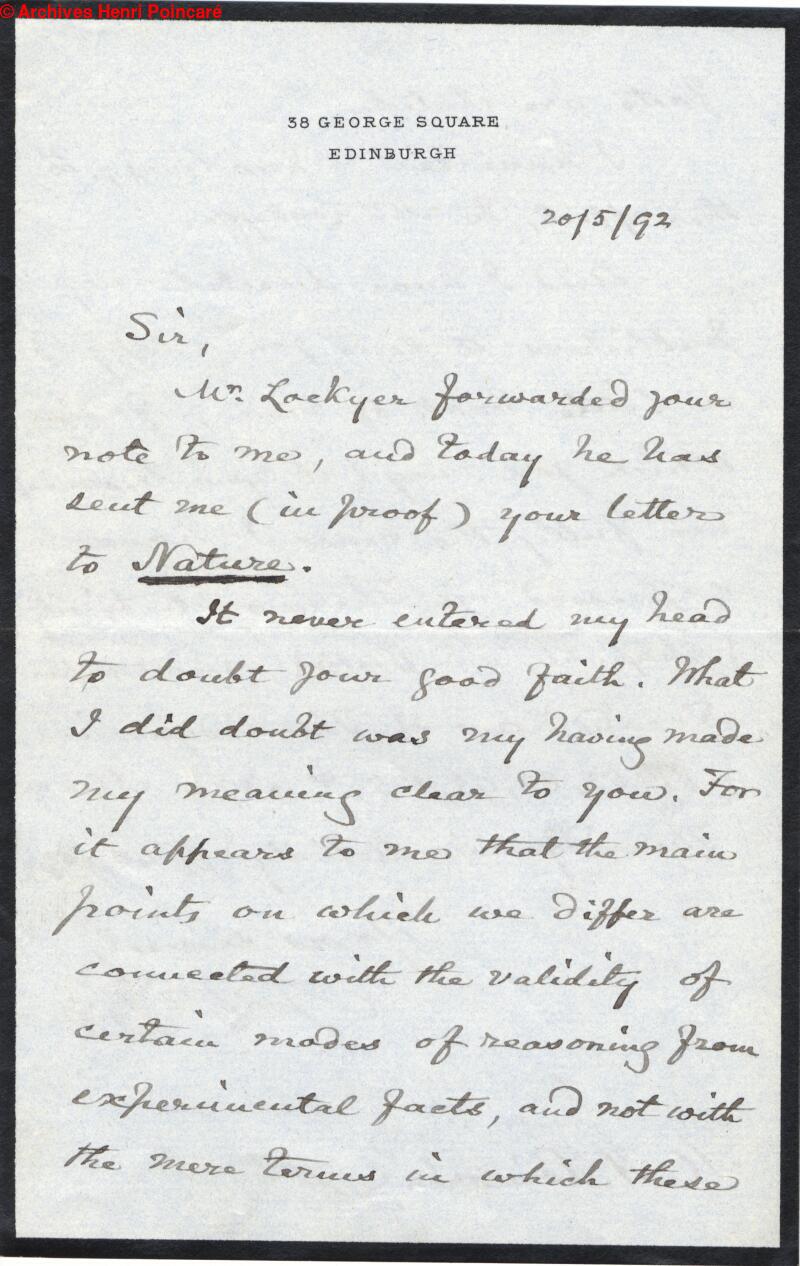 © Archives Henri Poincaré
38 GEORGE SQUARE
EDINBURGH
20/5/92
Sir,
Mr. Lockyer forwarded your
note to me, and today he has
sent me (in proof) your letter
to Nature.
It never entered my head
to doubt your good faith. What
I did doubt was my having made
my meaning clear to you. For
it appears to me that the main
points on which we differ are
connected with the validity of
certain modes of reasoning from
experimental facts, and not with
the mere terms in which these